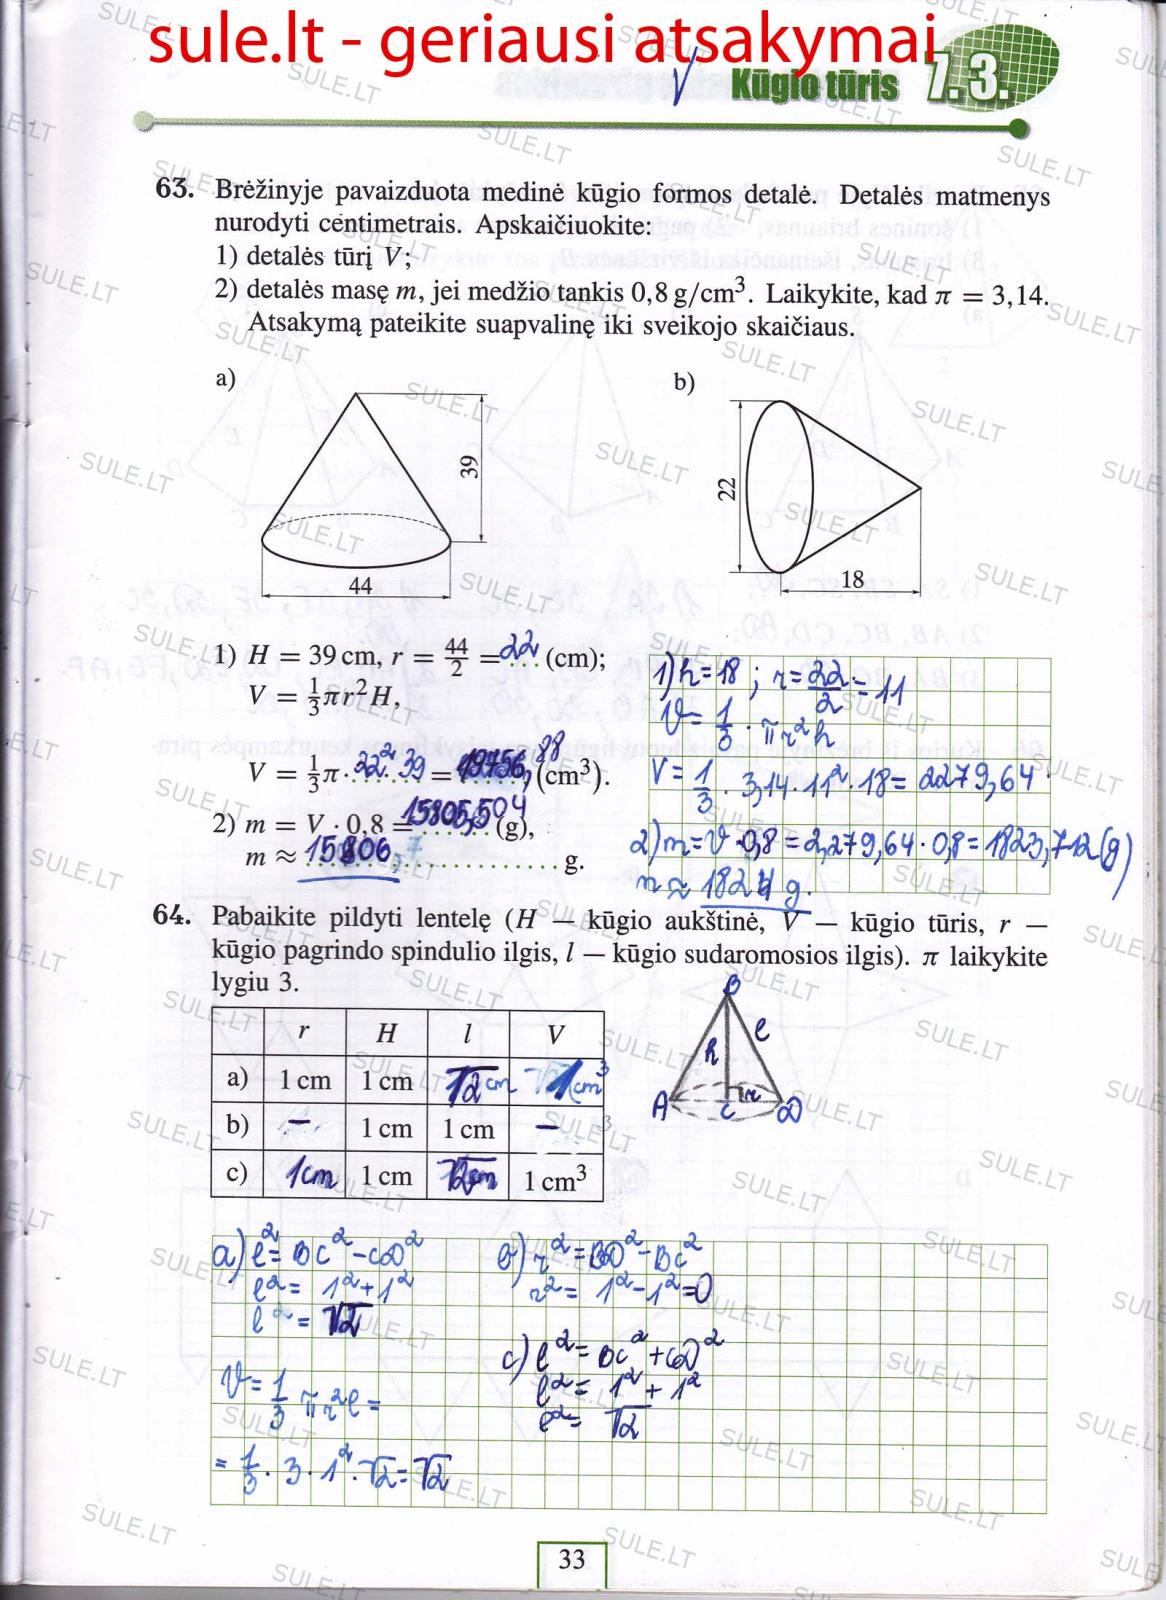 sule.lt - geriausi atsakymai
√ Kūgio tūris 7.3.
63. Brėžinyje pavaizduota medinė kūgio formos detalė. Detalės matmenys
nurodyti centimetrais. Apskaičiuokite:
1) detalės tūrį V;
2) detalės masę m, jei medžio tankis 0,8 g/cm³. Laikykite, kad π = 3,14.
Atsakymą pateikite suapvalinę iki sveikojo skaičiaus.
a)
b)
39
44
22
18
1) H = 39 cm, r = 44/2 = 22 (cm);
V = 1/3 πr²H,
V = 1/3 π·22²·39 = 19756,88 (cm³).
2) m = V · 0,8 = 15805,504 (g),
m ≈ 15806 g.
1) h=18 ; r=22/2=11
V=1/3 · πr²h
V=1/3 · 3,14·11²·18=2279,64
2) m=V·0,8=2,279,64·0,8=1823,712(g)
m≈1824 g.
64. Pabaikite pildyti lentelę (H — kūgio aukštinė, V — kūgio tūris, r —
kūgio pagrindo spindulio ilgis, l — kūgio sudaromosios ilgis). π laikykite
lygiu 3.
r H l V
a) 1 cm 1 cm √2 cm 1 cm³
b) – 1 cm 1 cm –
c) 1cm 1 cm √2cm 1 cm³
B
h l
A C r D
a) l²=BC²-CD²
l²= 1²+1²
l²= √2
V=1/3 πr²l=
=1/3·3·1²·√2=√2
b) r²=BD²-BC²
r²= 1²-1²=0
c) l²=BC²+CD²
l²= 1²+1²
l²= √2
33
SULE.LT